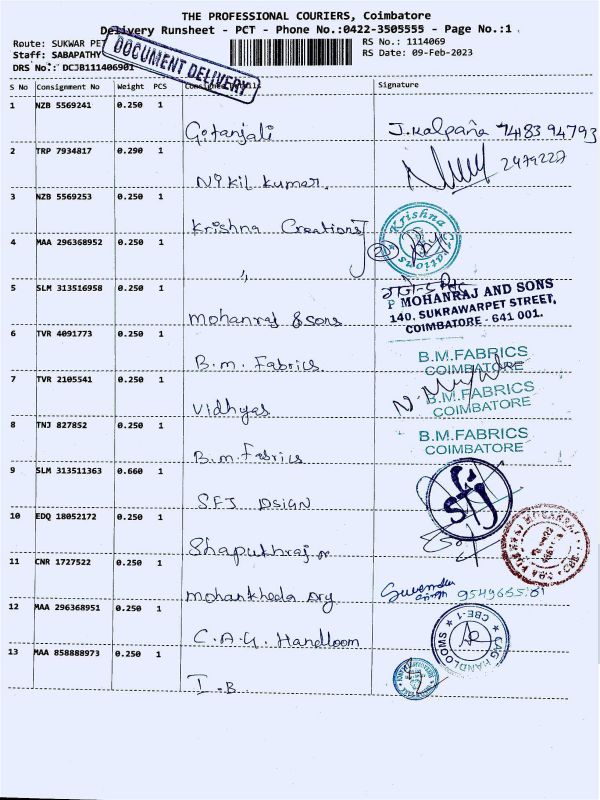 THE PROFESSIONAL COURIERS, Coimbatore
Delivery Runsheet - PCT - Phone No.:0422-3505555 - Page No.:1
Route: SUKWAR PET
RS No.: 1114069
Staff: SABAPATHY
RS Date: 09-Feb-2023
DRS No.: DCJB111406901
DOCUMENT DELIVERY
S No Consignment No Weight PCS Signature
1 NZB 5569241 0.250 1
Gotanjali J.Kalpana 74183 94793
2 TRP 7934817 0.290 1
Nikil kumar. 2479227
3 NZB 5569253 0.250 1
Krishna Creations Krishna Creations
4 MAA 296368952 0.250 1
〃 2
5 SLM 313516958 0.250 1
mohanraj & sons P MOHANRAJ AND SONS
140, SUKRAWARPET STREET,
COIMBATORE - 641 001.
6 TVR 4091773 0.250 1
B.m. Fabrics. B.M.FABRICS
COIMBATORE
7 TVR 2105541 0.250 1
Vidhyas B.M.FABRICS
COIMBATORE
8 TNJ 827852 0.250 1
B.m. Fabrics B.M.FABRICS
COIMBATORE
9 SLM 313511363 0.660 1
SFJ DSIGN STJ
10 EDQ 18052172 0.250 1
Shapukhraj
11 CNR 1727522 0.250 1
mohankheda
12 MAA 296368951 0.250 1
C.A.G. Handloom CAG HANDLOOMS CBE-1
13 MAA 858888973 0.250 1
I.B